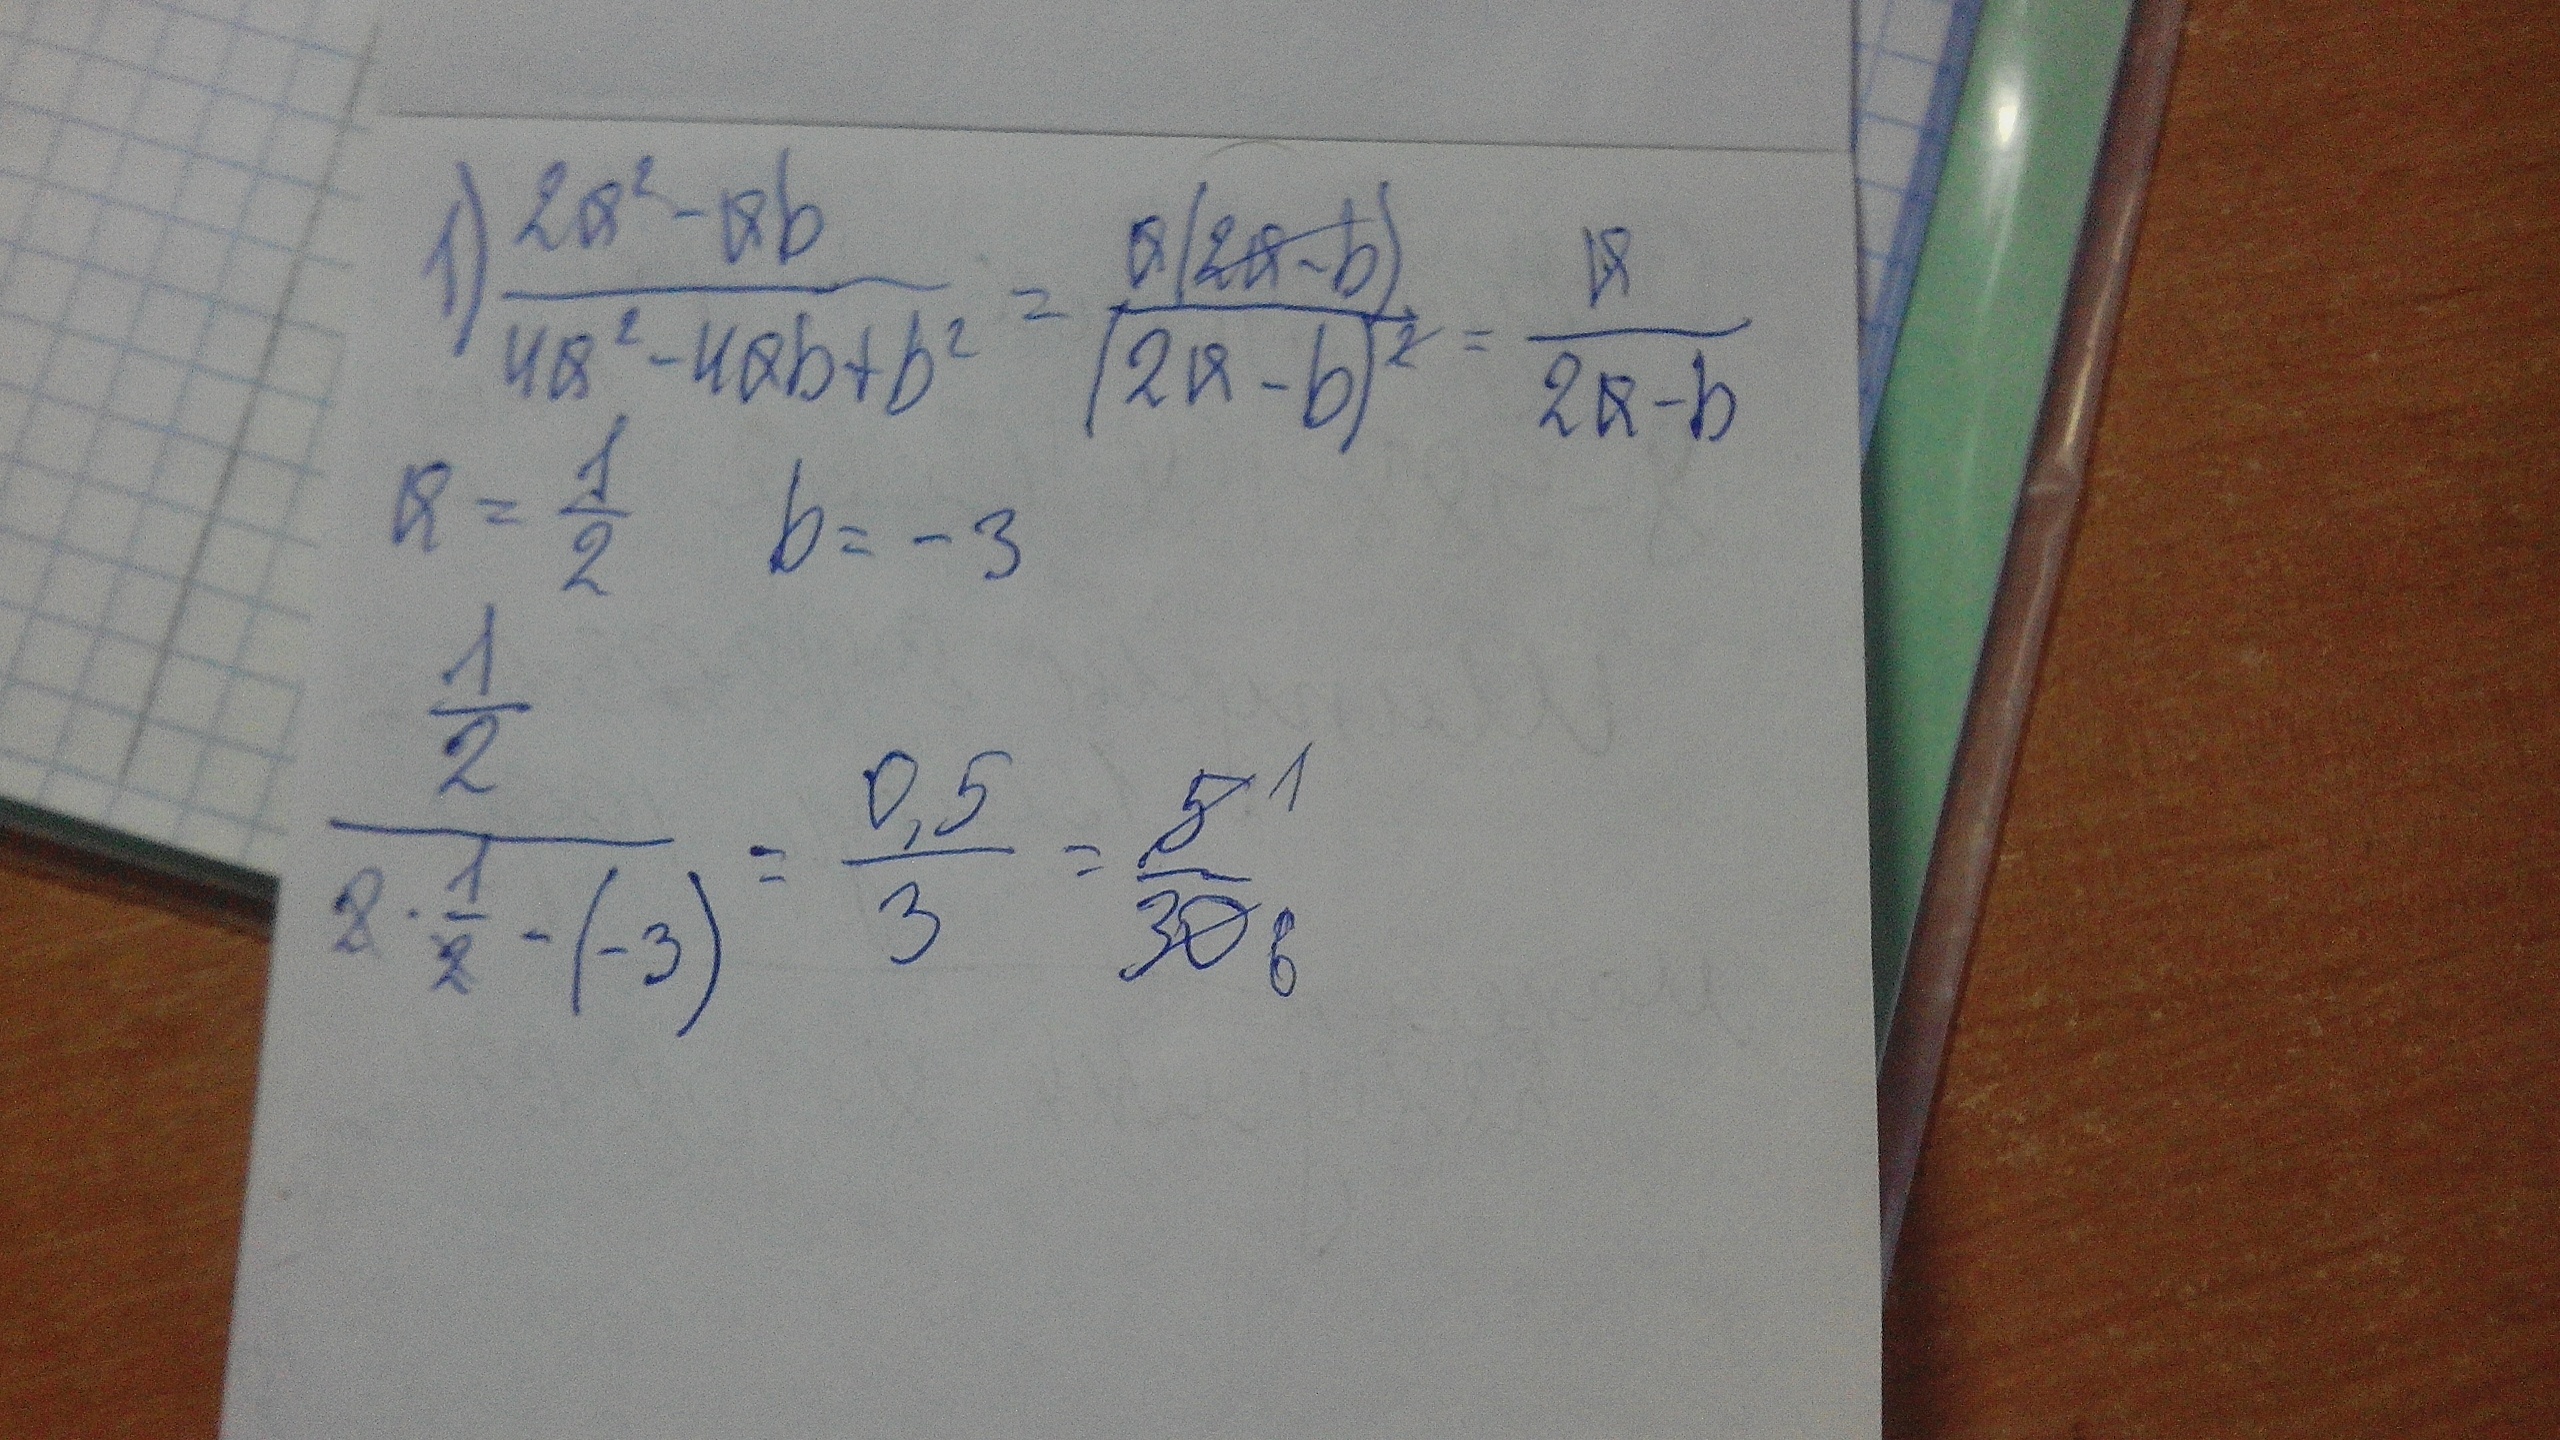 1) (2a² - ab)/(4a² - 4ab + b²) = a(2a - b)/(2a - b)² = a/(2a - b)
a = 1/2 b = -3
(1/2)/(2 · 1/2 - (-3)) = 0,5/3 = 5/30 1/6